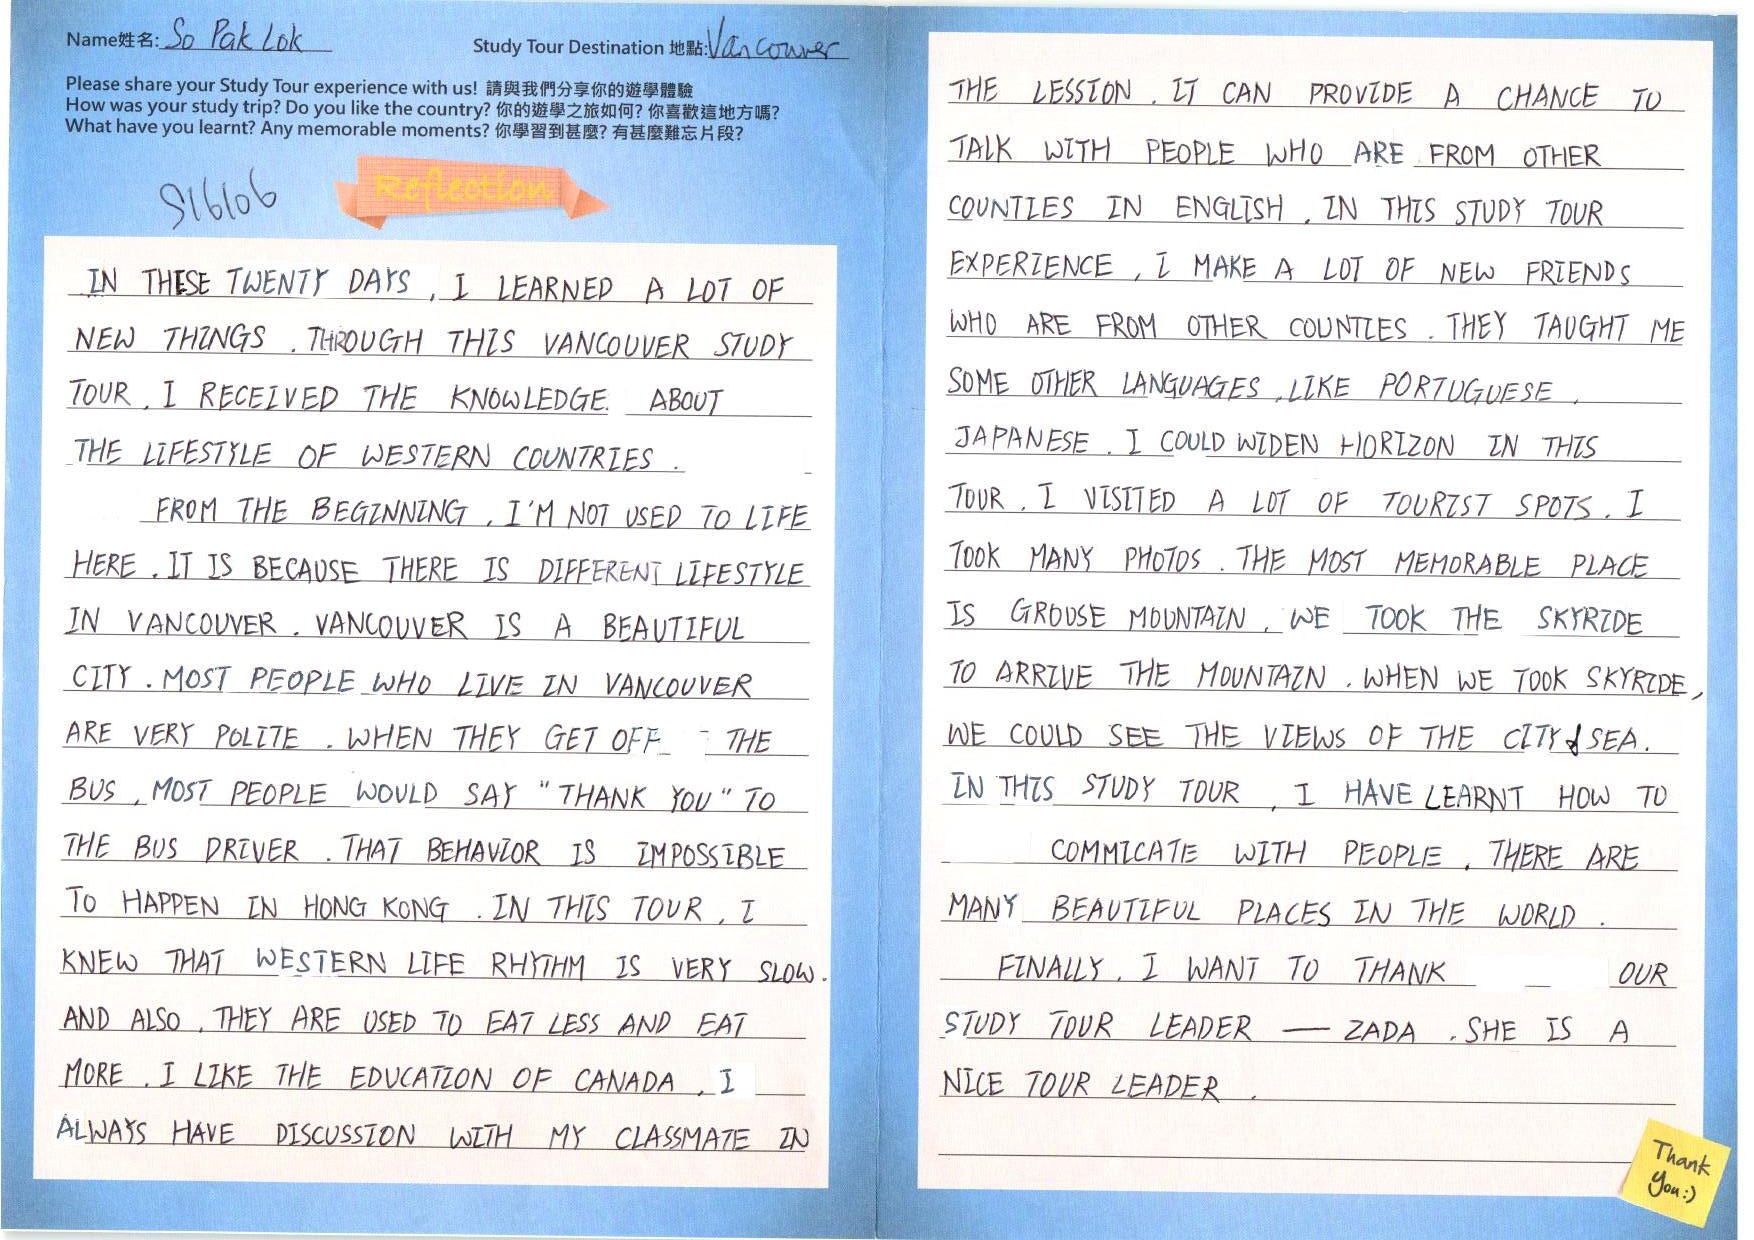 Name姓名: So Pak Lok
Study Tour Destination 地點: Vancouver
Please share your Study Tour experience with us! 請與我們分享你的遊學體驗
How was your study trip? Do you like the country? 你的遊學之旅如何? 你喜歡這地方嗎?
What have you learnt? Any memorable moments? 你學習到甚麼? 有甚麼難忘片段?
S16106
Reflection
IN THESE TWENTY DAYS, I LEARNED A LOT OF
NEW THINGS. THROUGH THIS VANCOUVER STUDY
TOUR, I RECEIVED THE KNOWLEDGE ABOUT
THE LIFESTYLE OF WESTERN COUNTRIES.
FROM THE BEGINNING, I'M NOT USED TO LIFE
HERE. IT IS BECAUSE THERE IS DIFFERENT LIFESTYLE
IN VANCOUVER. VANCOUVER IS A BEAUTIFUL
CITY. MOST PEOPLE WHO LIVE IN VANCOUVER
ARE VERY POLITE. WHEN THEY GET OFF THE
BUS, MOST PEOPLE WOULD SAY "THANK YOU" TO
THE BUS DRIVER. THAT BEHAVIOR IS IMPOSSIBLE
TO HAPPEN IN HONG KONG. IN THIS TOUR, I
KNEW THAT WESTERN LIFE RHYTHM IS VERY SLOW.
AND ALSO, THEY ARE USED TO EAT LESS AND EAT
MORE. I LIKE THE EDUCATION OF CANADA, I
ALWAYS HAVE DISCUSSION WITH MY CLASSMATE IN
THE LESSION. IT CAN PROVIDE A CHANCE TO
TALK WITH PEOPLE WHO ARE FROM OTHER
COUNTIES IN ENGLISH. IN THIS STUDY TOUR
EXPERIENCE, I MAKE A LOT OF NEW FRIENDS
WHO ARE FROM OTHER COUNTIES. THEY TAUGHT ME
SOME OTHER LANGUAGES, LIKE PORTUGUESE,
JAPANESE. I COULD WIDEN HORIZON IN THIS
TOUR. I VISITED A LOT OF TOURIST SPOTS. I
TOOK MANY PHOTOS. THE MOST MEMORABLE PLACE
IS GROUSE MOUNTAIN. WE TOOK THE SKYRIDE
TO ARRIVE THE MOUNTAIN. WHEN WE TOOK SKYRIDE,
WE COULD SEE THE VIEWS OF THE CITY & SEA.
IN THIS STUDY TOUR, I HAVE LEARNT HOW TO
COMMICATE WITH PEOPLE. THERE ARE
MANY BEAUTIFUL PLACES IN THE WORLD.
FINALLY, I WANT TO THANK OUR
STUDY TOUR LEADER — ZADA. SHE IS A
NICE TOUR LEADER.
Thank
You:)